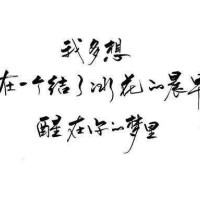 我多想
在一个结了冰花的晨早
醒在你的梦里